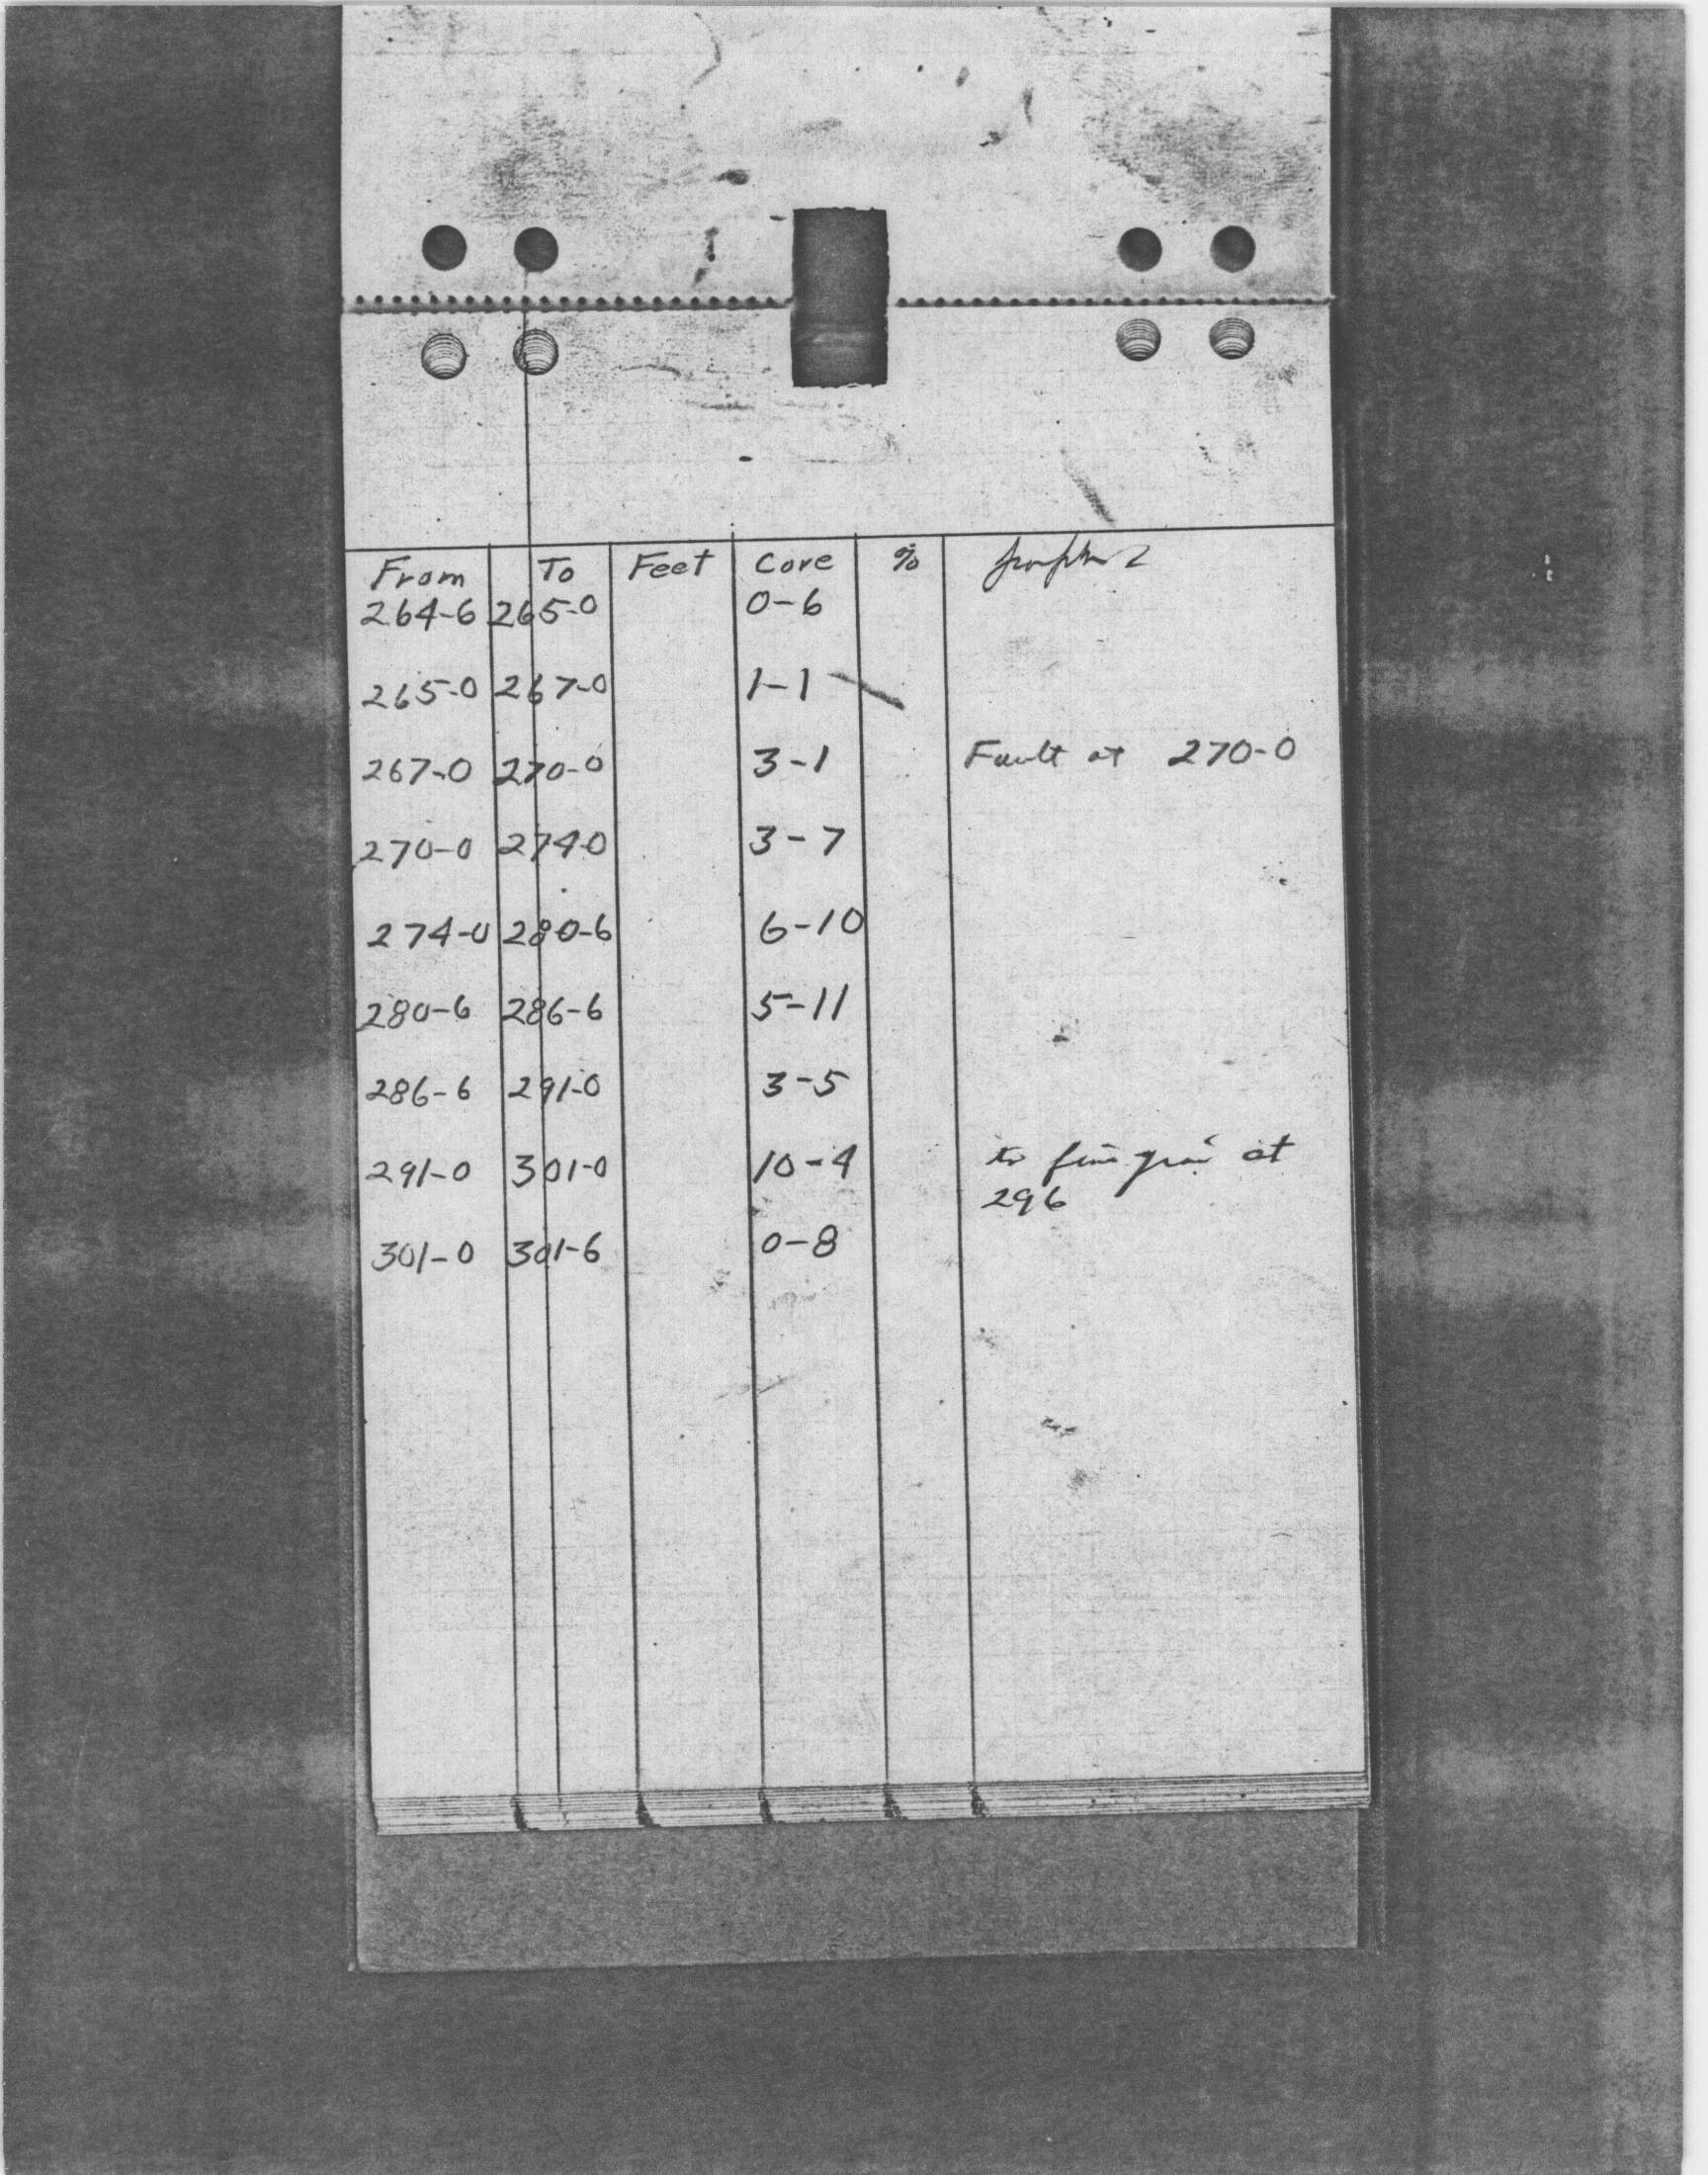 From To Feet Core %
264-6 265-0 0-6
265-0 267-0 1-1
267-0 270-0 3-1 Fault at 270-0
270-0 274-0 3-7
274-0 280-6 6-10
280-6 286-6 5-11
286-6 291-0 3-5
291-0 301-0 10-4 to fine grain at
296
301-0 301-6 0-8